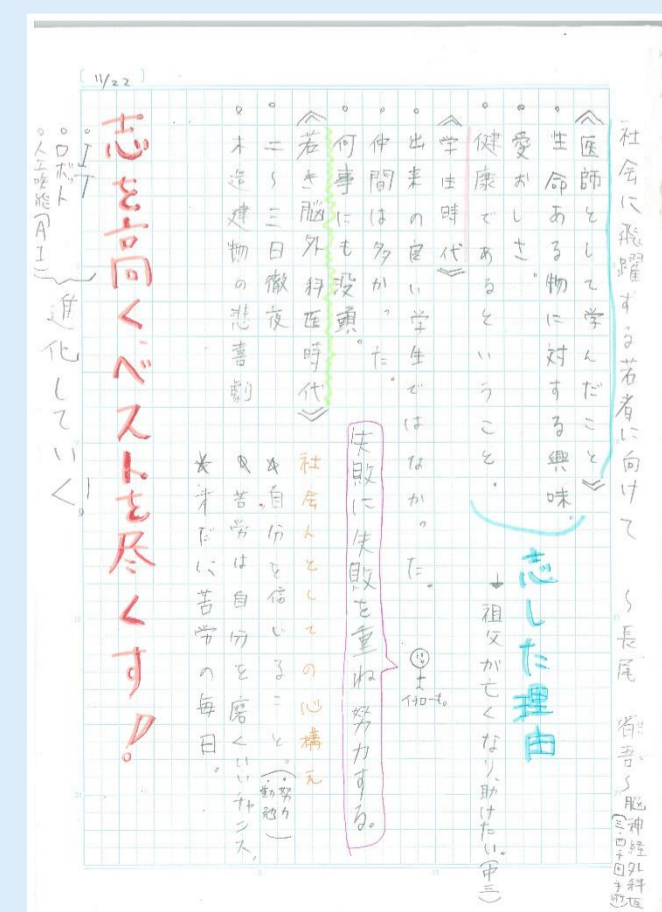 社会に飛躍する若者に向けて　～長尾　省吾～脳神経外科医
（三・四千回手術）
《医師として学んだこと》
。生命ある物に対する興味。
。愛おしさ。
。健康であるということ。
志した理由
↓祖父が亡くなり、助けたい。（中三）
《学生時代》
。出来の良い学生ではなかった。
。仲間は多かった。
。何事にも没頭。
イチローも。
失敗に失敗を重ね努力する。
《若き脳外科医時代》
。二～三日徹夜
。木造建物の悲喜劇
社会人としての心構え
☆自分を信じること。（・努力・勤勉）
☆苦労は自分を磨くいいチャンス。
☆未だに苦労の毎日。
志を高くベストを尽くす!
[11/22]
。IT
。ロボット
。人工知能（AI）
進化していく。